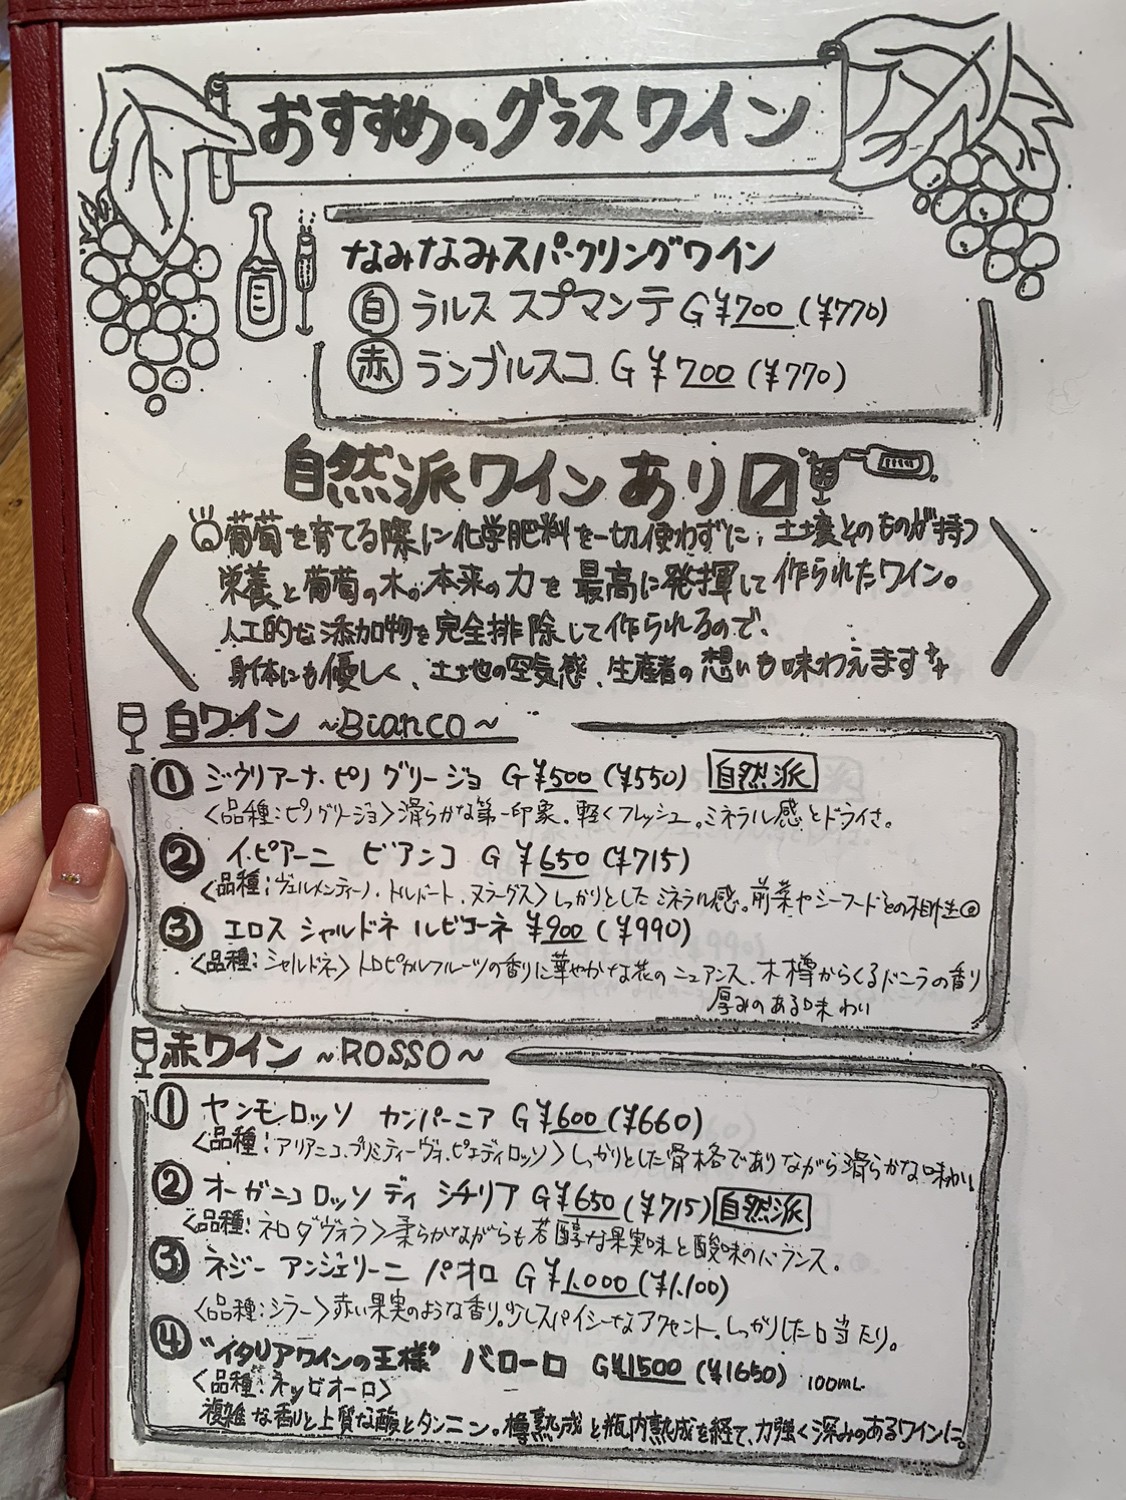 おすすめのグラスワイン
なみなみスパークリングワイン
白 ラルス スプマンテ G ¥700 (¥770)
赤 ランブルスコ G ¥700 (¥770)
自然派ワインあり
葡萄を育てる際に化学肥料を一切使わずに、土壌そのものが持つ
栄養と葡萄の木の本来の力を最高に発揮して作られたワイン。
人工的な添加物を完全排除して作られるので、
身体にも優しく、土地の空気感、生産者の想いも味わえます
白ワイン ~Bianco~
① ジウリアーナ・ピノ グリージョ G ¥500 (¥550) 自然派
<品種:ピノグリージョ>滑らかな第一印象。軽くフレッシュ。ミネラル感とドライさ。
② イ・ピアーニ ビアンコ G ¥650 (¥715)
<品種:ヴェルメンティーノ・トルバート・ヌラーグス>しっかりとしたミネラル感。前菜やシーフードとの相性◎
③ エロス シャルドネ ルビコーネ ¥900 (¥990)
<品種:シャルドネ>トロピカルフルーツの香りに華やかな花のニュアンス、木樽からくるバニラの香り
厚みのある味わい
赤ワイン ~ROSSO~
① ヤンモ ロッソ カンパーニア G ¥600 (¥660)
<品種:アリアニコ・プリミティーヴォ・ピエディロッソ>しっかりとした骨格でありながら滑らかな味わい
② オーガニコ ロッソ ディ シチリア G ¥650 (¥715) 自然派
<品種:ネロダヴォラ>柔らかながらも芳醇な果実味と酸味のバランス。
③ ネジー アンジェリーニ パオロ G ¥1,000 (¥1,100)
<品種:シラー>赤い果実のような香り。少しスパイシーなアクセント。しっかりした口当たり。
④ "イタリアワインの王様" バローロ G ¥1500 (¥1650) 100mL
<品種:ネッビオーロ>
複雑な香りと上質な酸とタンニン。樽熟成と瓶内熟成を経て、力強く深みのあるワインに。